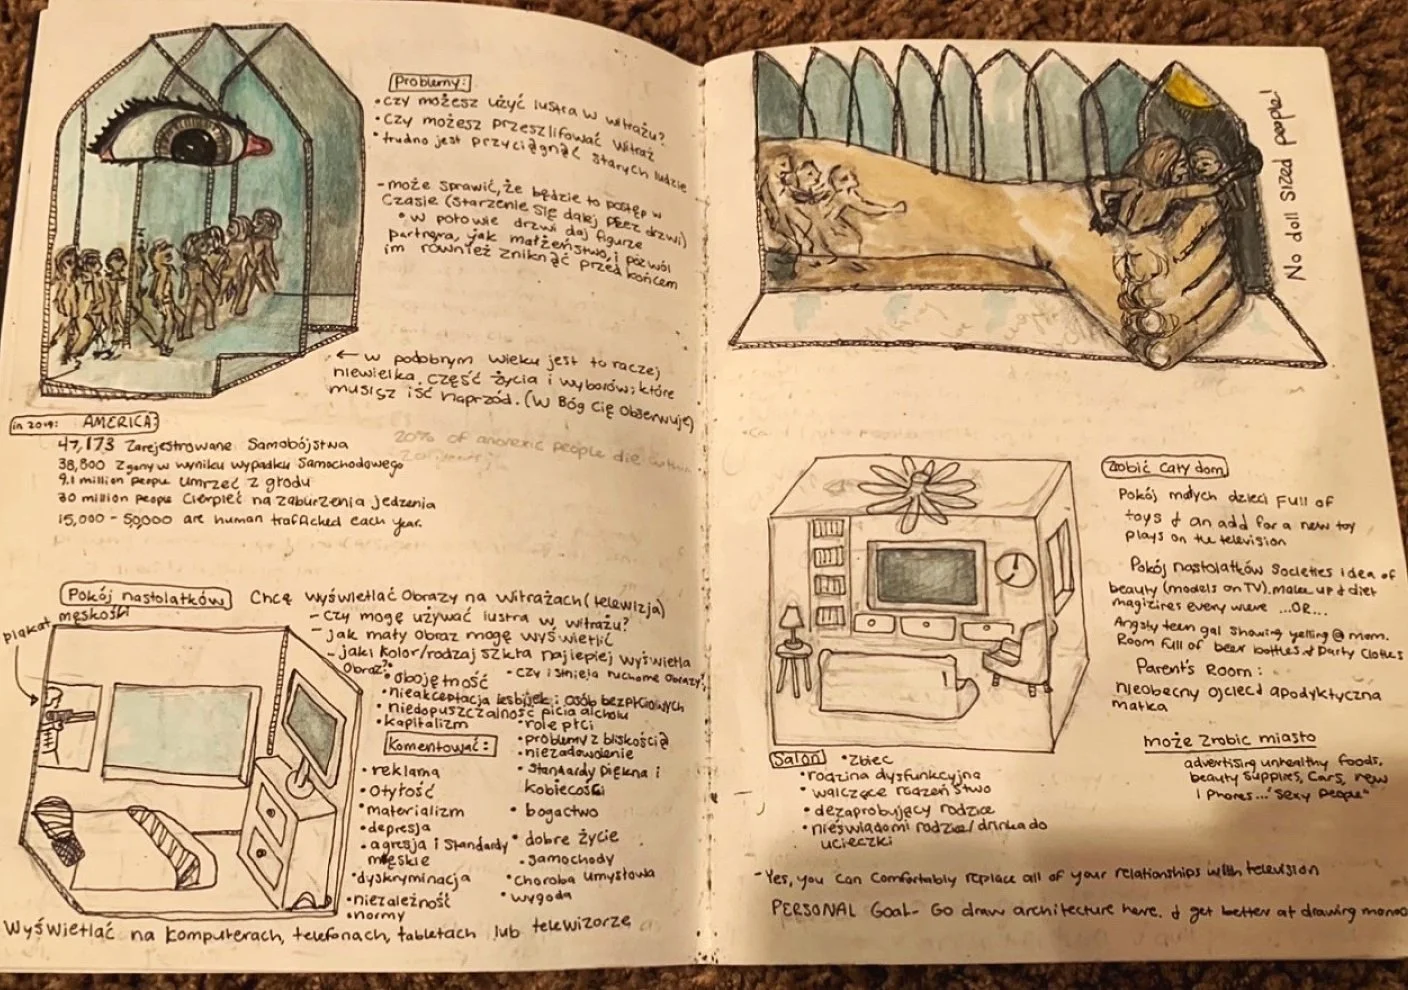 Problemy:
• czy możesz użyć lustra w witrażu?
• czy możesz przeszlifować witraż
• trudno jest przyciągnąć starych ludzie
- może sprawić, że będzie to postęp w
czasie (starzenie się dalej przez drzwi)
• w połowie drzwi daj figurze
partnera, jak małżeństwo, i pozwól
im również zniknąć przed końcem
← w podobnym wieku jest to raczej
niewielka część życia i wyborów, które
musisz iść naprzód. (W Bóg Cię obserwuje)
in 2019: AMERICA:
47,173 Zarejestrowane Samobójstwa
38,800 Zgony w wyniku wypadku Samochodowego
9.1 million people umrzeć z głodu
30 million people cierpieć na zaburzenia jedzenia
15,000 - 50,000 are human trafficked each year.
20% of anorexic people die within
20
Pokój nastolatków Chcę wyświetlać obrazy na witrażach (telewizja)
męskości
plakat
- Czy mogę używać lustra w witrażu?
- jak mały obraz mogę wyświetlić
- jaki kolor/rodzaj szkła najlepiej wyświetla
obraz? - czy istnieją ruchome obrazy?
• obojętność
• nieakceptacja lesbijek i osób bezpłciowych
• niedopuszczalność picia alcholu
• kapitalizm
• role płci
• problemy z bliskością
• niezadowolenie
• Standardy piękna i
kobiecości
• bogactwo
• dobre życie
• samochody
• choroba umysłowa
• wygoda
Komentować:
• reklama
• otyłość
• materializm
• depresja
• agresja i standardy
męskie
• dyskryminacja
• niezależność
• normy
Wyświetlać na komputerach, telefonach, tabletach lub telewizorze
No doll sized people!
Zrobić cały dom
Pokój małych dzieci Full of
toys & an add for a new toy
plays on the television
Pokój nastolatków Societies idea of
beauty (models on TV). make up & diet
magizines every where ...OR...
Angsty teen gal showing yelling @ mom.
Room full of beer bottles & Party Clothes
Parent's Room:
nieobecny ojcieci apodyktyczna
matka
może zrobic miasto
advertising unhealthy foods,
beauty supplies, cars, new
iPhones... "Sexy People"
Salon • Zbiec
• rodzina dysfunkcyjna
• walczące rodzeństwo
• dezaprobujący rodzice
• nieświadomi rodzice/drinka do
ucieczki
- Yes, you can comfortably replace all of your relationships with television
PERSONAL Goal - Go draw architecture here. & get better at drawing